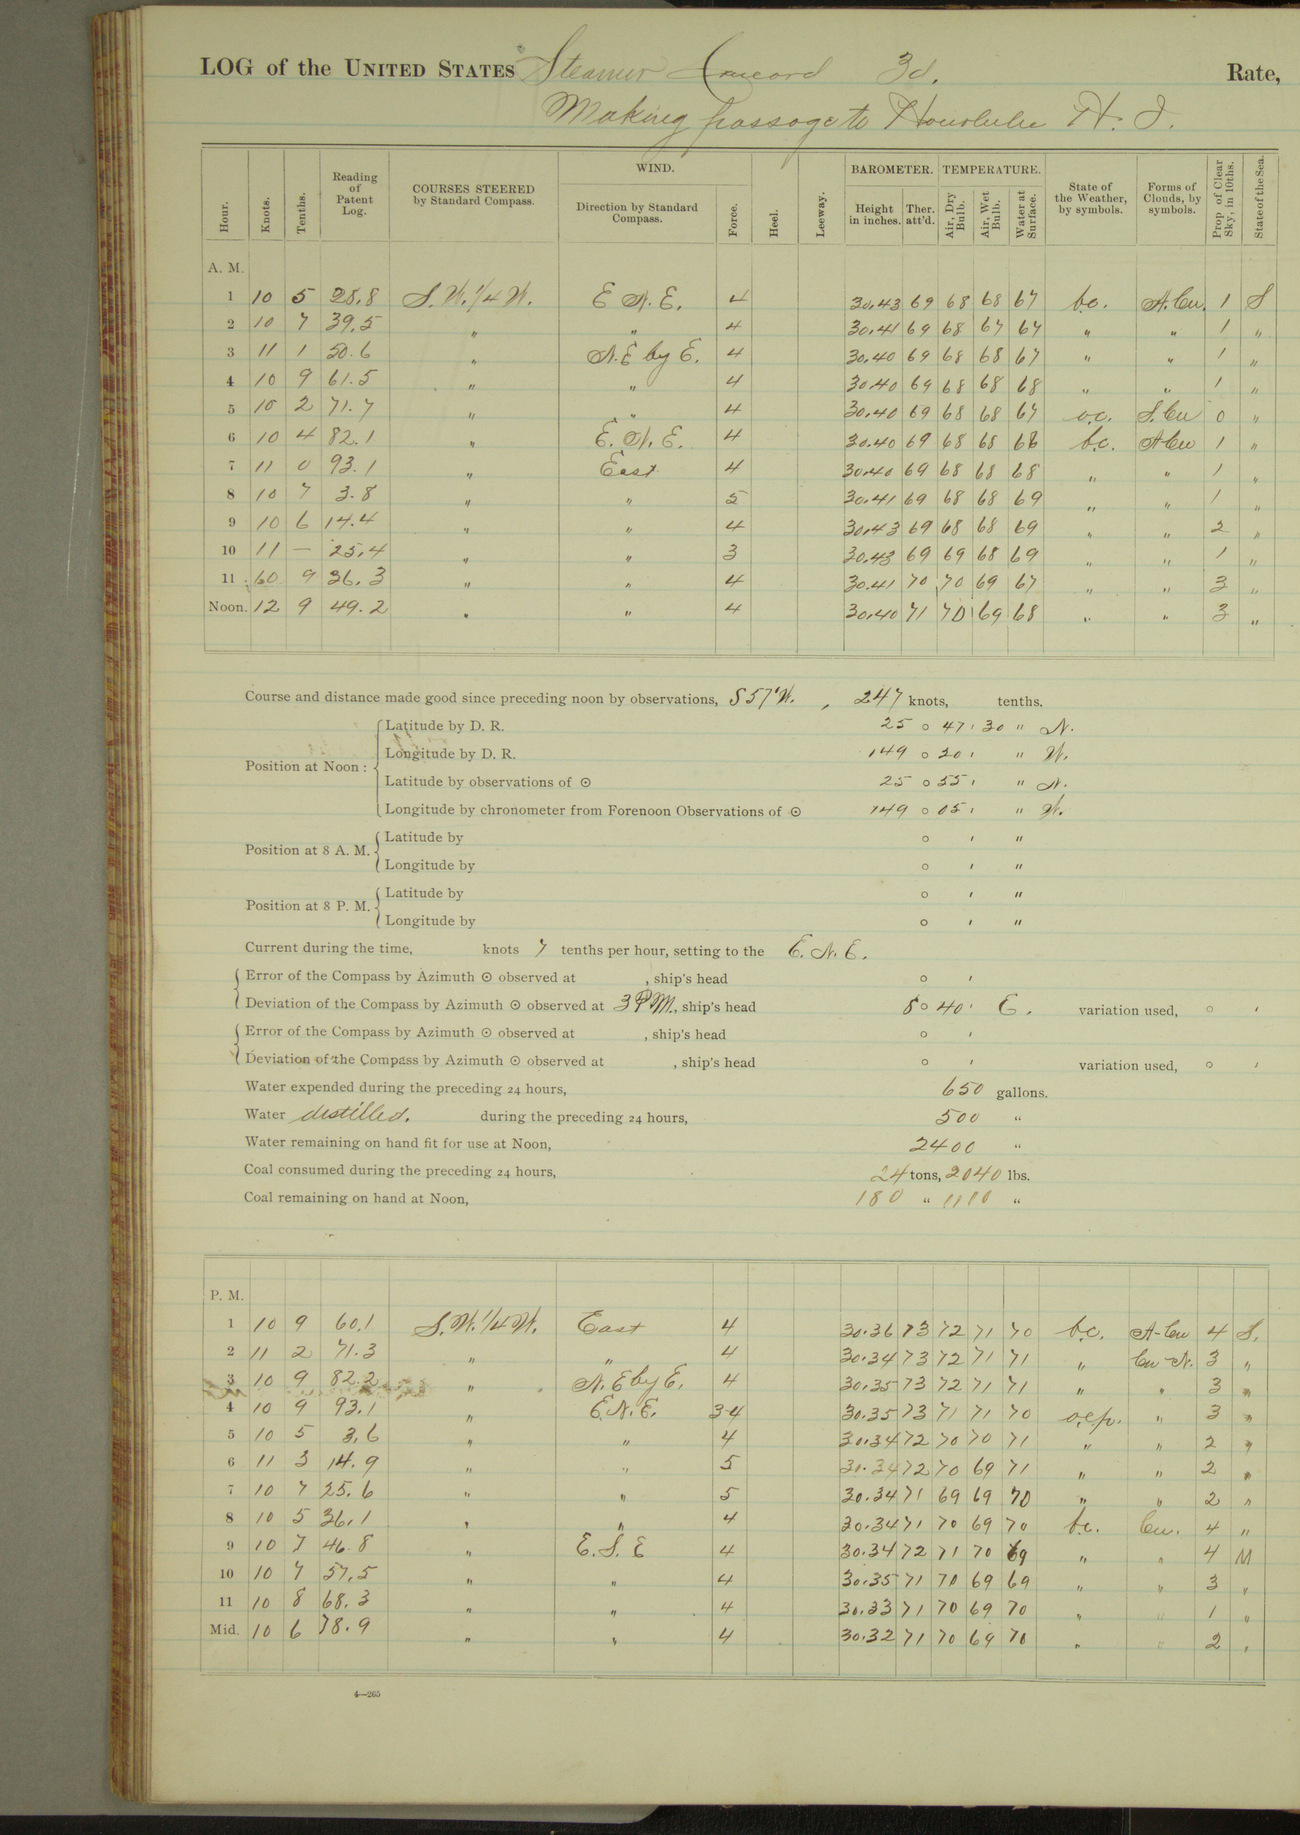 LOG of the UNITED STATES Steamer Concord 3d. Rate,
Making passage to Honolulu H. I.
Hour. Knots. Tenths. Reading of Patent Log. COURSES STEERED by Standard Compass. WIND. Direction by Standard Compass. Force. Heel. Leeway. BAROMETER. Height in inches. Ther. att'd. TEMPERATURE. Air, Dry Bulb. Air, Wet Bulb. Water at Surface. State of the Weather, by symbols. Forms of Clouds, by symbols. Prop. of Clear Sky, in 10ths. State of the Sea.
A. M.
1 10 5 28.8 S.W. 1/4 W. E N. E. 4 30.43 69 68 68 67 b.c. A.Cu. 1 S
2 10 7 39.5 " " 4 30.41 69 68 67 67 " " 1 "
3 11 1 50.6 " N.E by E. 4 30.40 69 68 68 67 " " 1 "
4 10 9 61.5 " " 4 30.40 69 68 68 68 " " 1 "
5 10 2 71.7 " " 4 30.40 69 68 68 67 o.c. S.Cu 0 "
6 10 4 82.1 " E. N. E. 4 30.40 69 68 68 68 b.c. A Cu 1 "
7 11 0 93.1 " East 4 30.40 69 68 68 68 " " 1 "
8 10 7 3.8 " " 5 30.41 69 68 68 69 " " 1 "
9 10 6 14.4 " " 4 30.43 69 68 68 69 " " 2 "
10 11 — 25.4 " " 3 30.43 69 69 68 69 " " 1 "
11 10 9 36.3 " " 4 30.41 70 70 69 67 " " 3 "
Noon. 12 9 49.2 " " 4 30.40 71 70 69 68 " " 3 "
Course and distance made good since preceding noon by observations, S 57° W. , 247 knots, tenths.
Position at Noon: Latitude by D. R. 25 ° 47 ' 30 " N.
Longitude by D. R. 149 ° 20 ' " W.
Latitude by observations of ⊙ 25 ° 55 ' " N.
Longitude by chronometer from Forenoon Observations of ⊙ 149 ° 05 ' " W.
Position at 8 A. M. Latitude by ° ' "
Longitude by ° ' "
Position at 8 P. M. Latitude by ° ' "
Longitude by ° ' "
Current during the time, knots 7 tenths per hour, setting to the E. N. E.
Error of the Compass by Azimuth ⊙ observed at , ship's head ° '
Deviation of the Compass by Azimuth ⊙ observed at 3 P M., ship's head 8 ° 40 ' E. variation used, ° '
Error of the Compass by Azimuth ⊙ observed at , ship's head ° '
Deviation of the Compass by Azimuth ⊙ observed at , ship's head ° ' variation used, ° '
Water expended during the preceding 24 hours, 650 gallons.
Water distilled. during the preceding 24 hours, 500 "
Water remaining on hand fit for use at Noon, 2400 "
Coal consumed during the preceding 24 hours, 24 tons, 2040 lbs.
Coal remaining on hand at Noon, 180 " 1110 "
P. M.
1 10 9 60.1 S.W. 1/4 W. East 4 30.36 73 72 71 70 b.c. A-Cu 4 S.
2 11 2 71.3 " " 4 30.34 73 72 71 71 " Cu-N. 3 "
3 10 9 82.2 " N. E by E. 4 30.35 73 72 71 71 " " 3 "
4 10 9 93.1 " E.N.E. 3-4 30.35 73 71 71 70 o.c.p. " 3 "
5 10 5 3.6 " " 4 30.34 72 70 70 71 " " 2 "
6 11 3 14.9 " " 5 30.34 72 70 69 71 " " 2 "
7 10 7 25.6 " " 5 30.34 71 69 69 70 " " 2 "
8 10 5 36.1 " " 4 30.34 71 70 69 70 b.c. Cu. 4 "
9 10 7 46.8 " E. S. E 4 30.34 72 71 70 69 " " 4 M
10 10 7 57.5 " " 4 30.35 71 70 69 69 " " 3 "
11 10 8 68.3 " " 4 30.33 71 70 69 70 " " 1 "
Mid. 10 6 78.9 " " 4 30.32 71 70 69 70 " " 2 "
4—265